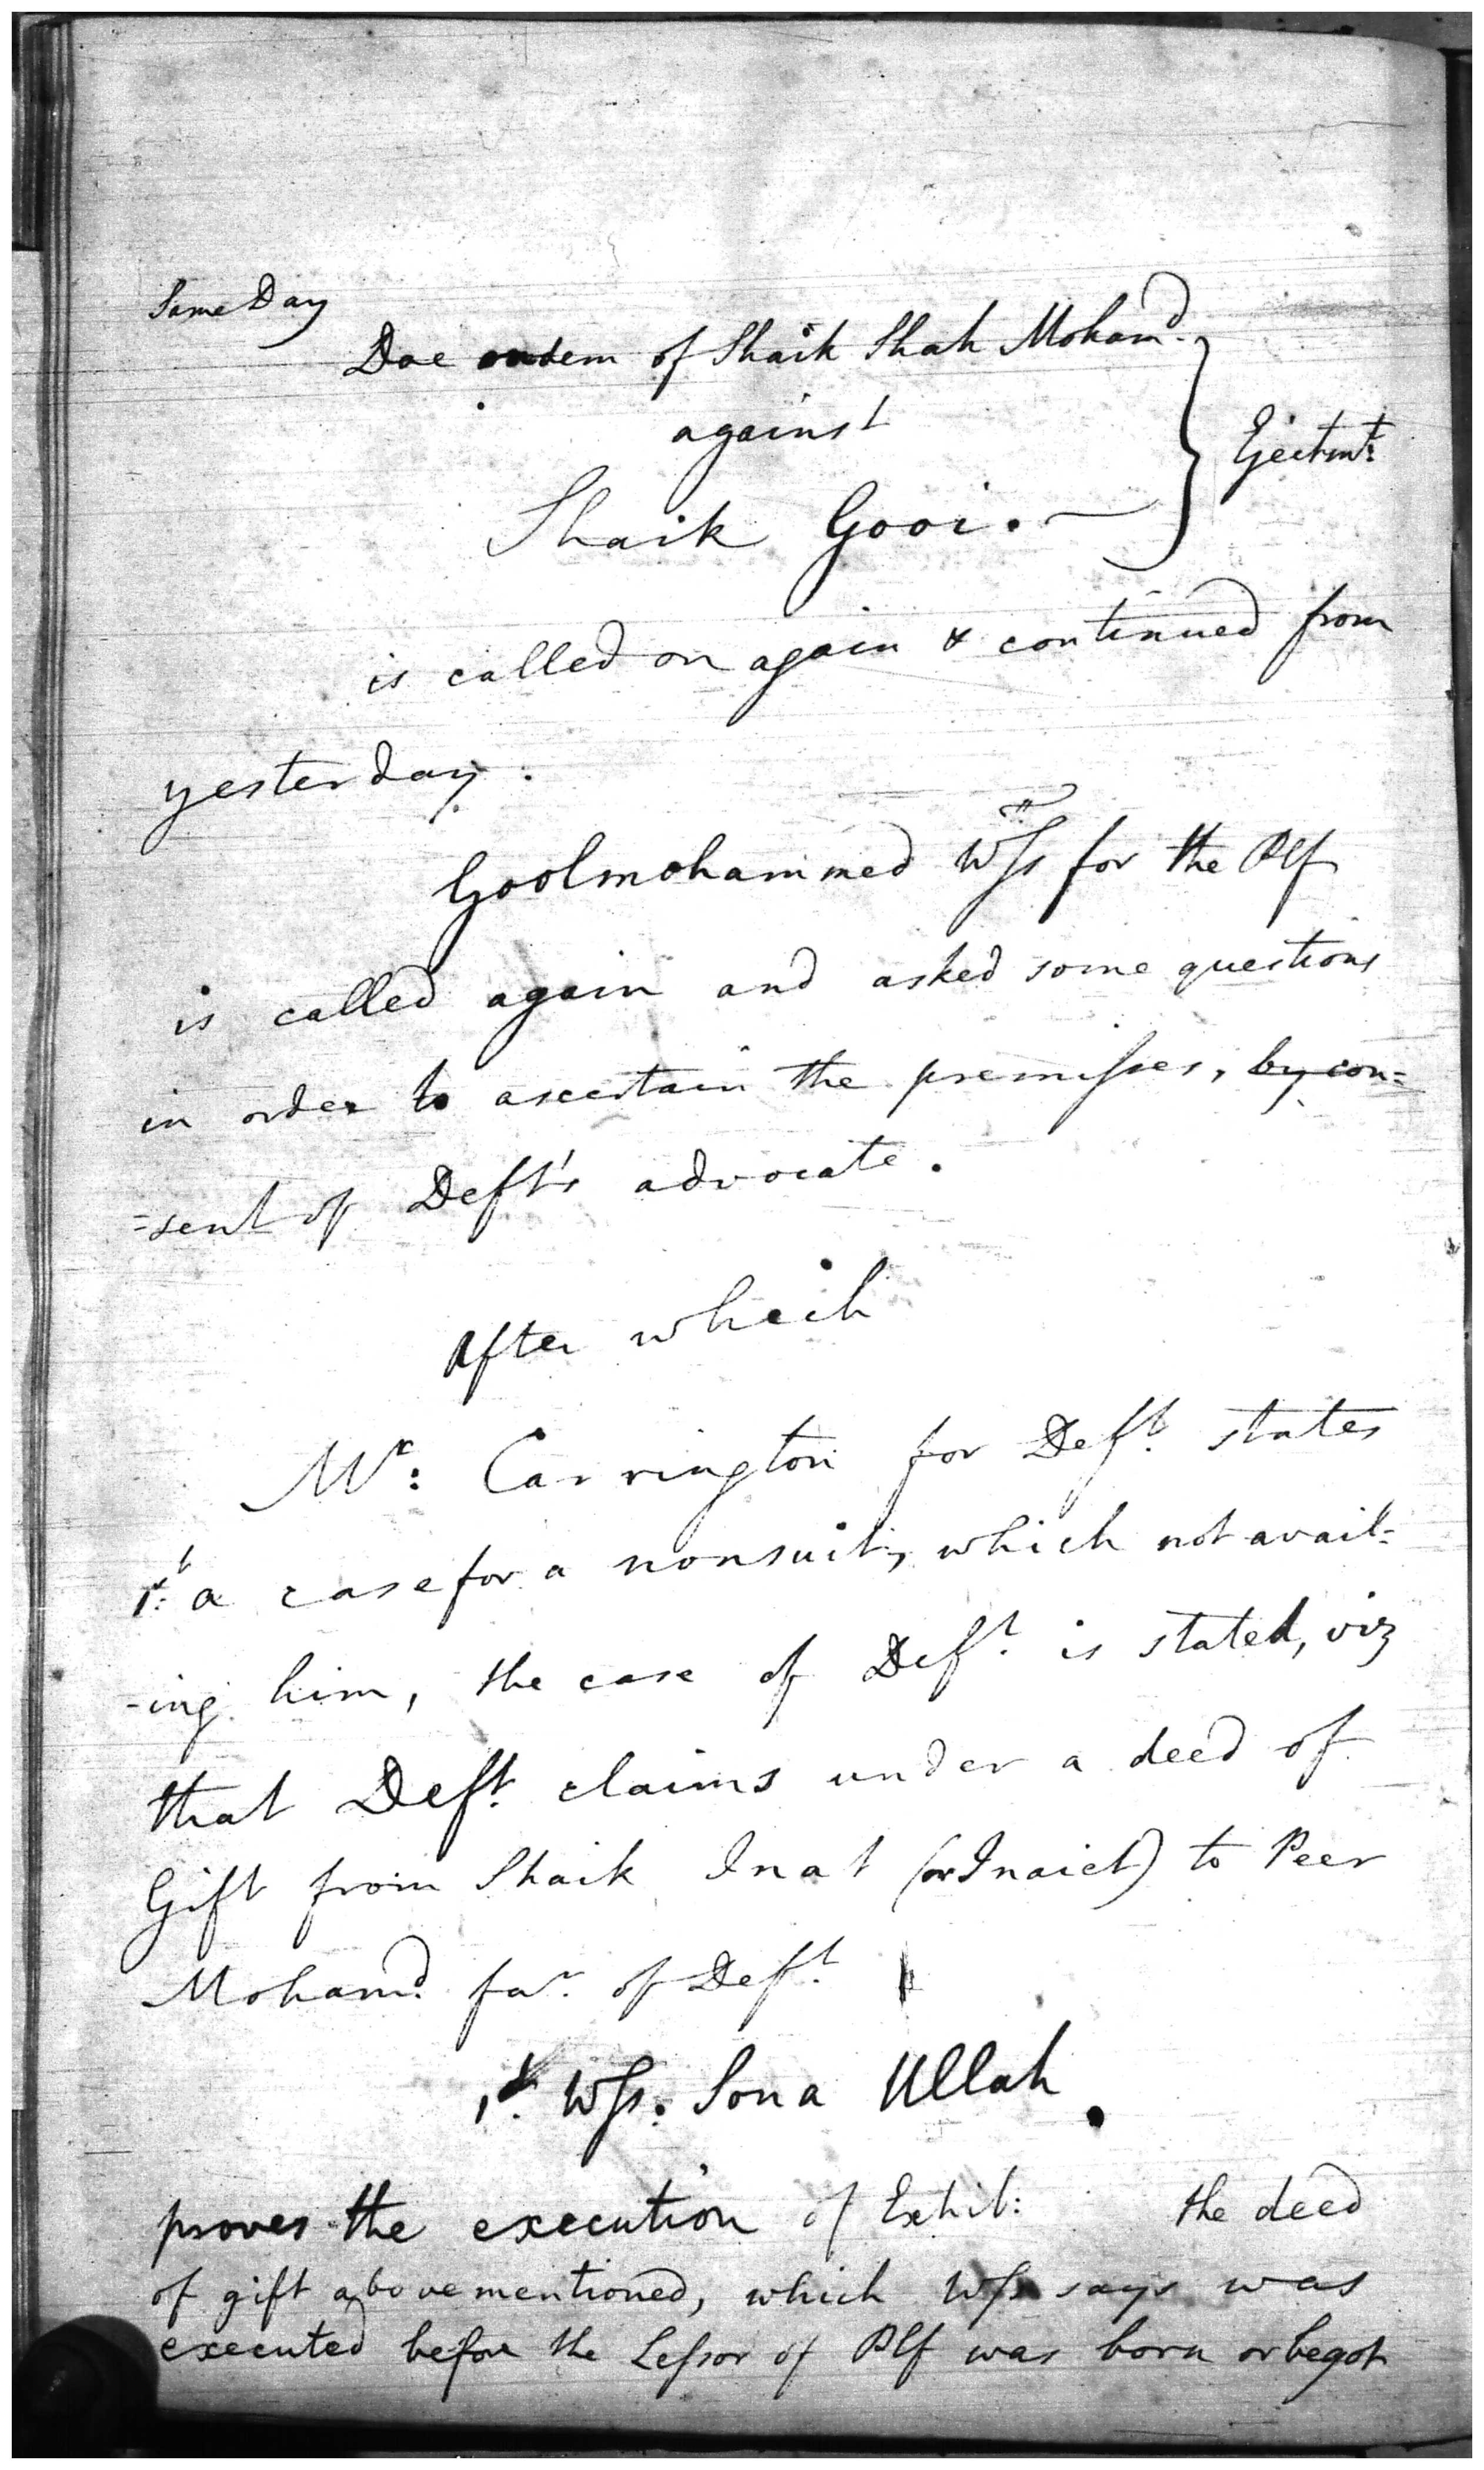 Same Day
Doe on dem of Shaik Shah Moham.d
against
Ejectm.t
Shaik Gooi. —
is called on again & continued from
yesterday.
Goolmohammed Wss for the Plf
is called again and asked some questions
in order to ascertain the premisses, by con=
=sent of Deft's advocate.
After which
Mr: Carrington for Deft. states
1st a case for a nonsuit, which not avail=
-ing him, the case of Deft. is stated, viz
that Deft. claims under a deed of
Gift from Shaik Inat (or Inaiet) to Peer
Moham.d far. of Deft.
1st. Wss. Sona Ullah.
proves the execution of Exhib: the deed
of gift abovementioned, which Wss says was
executed before the Lessor of Plf was born or begot